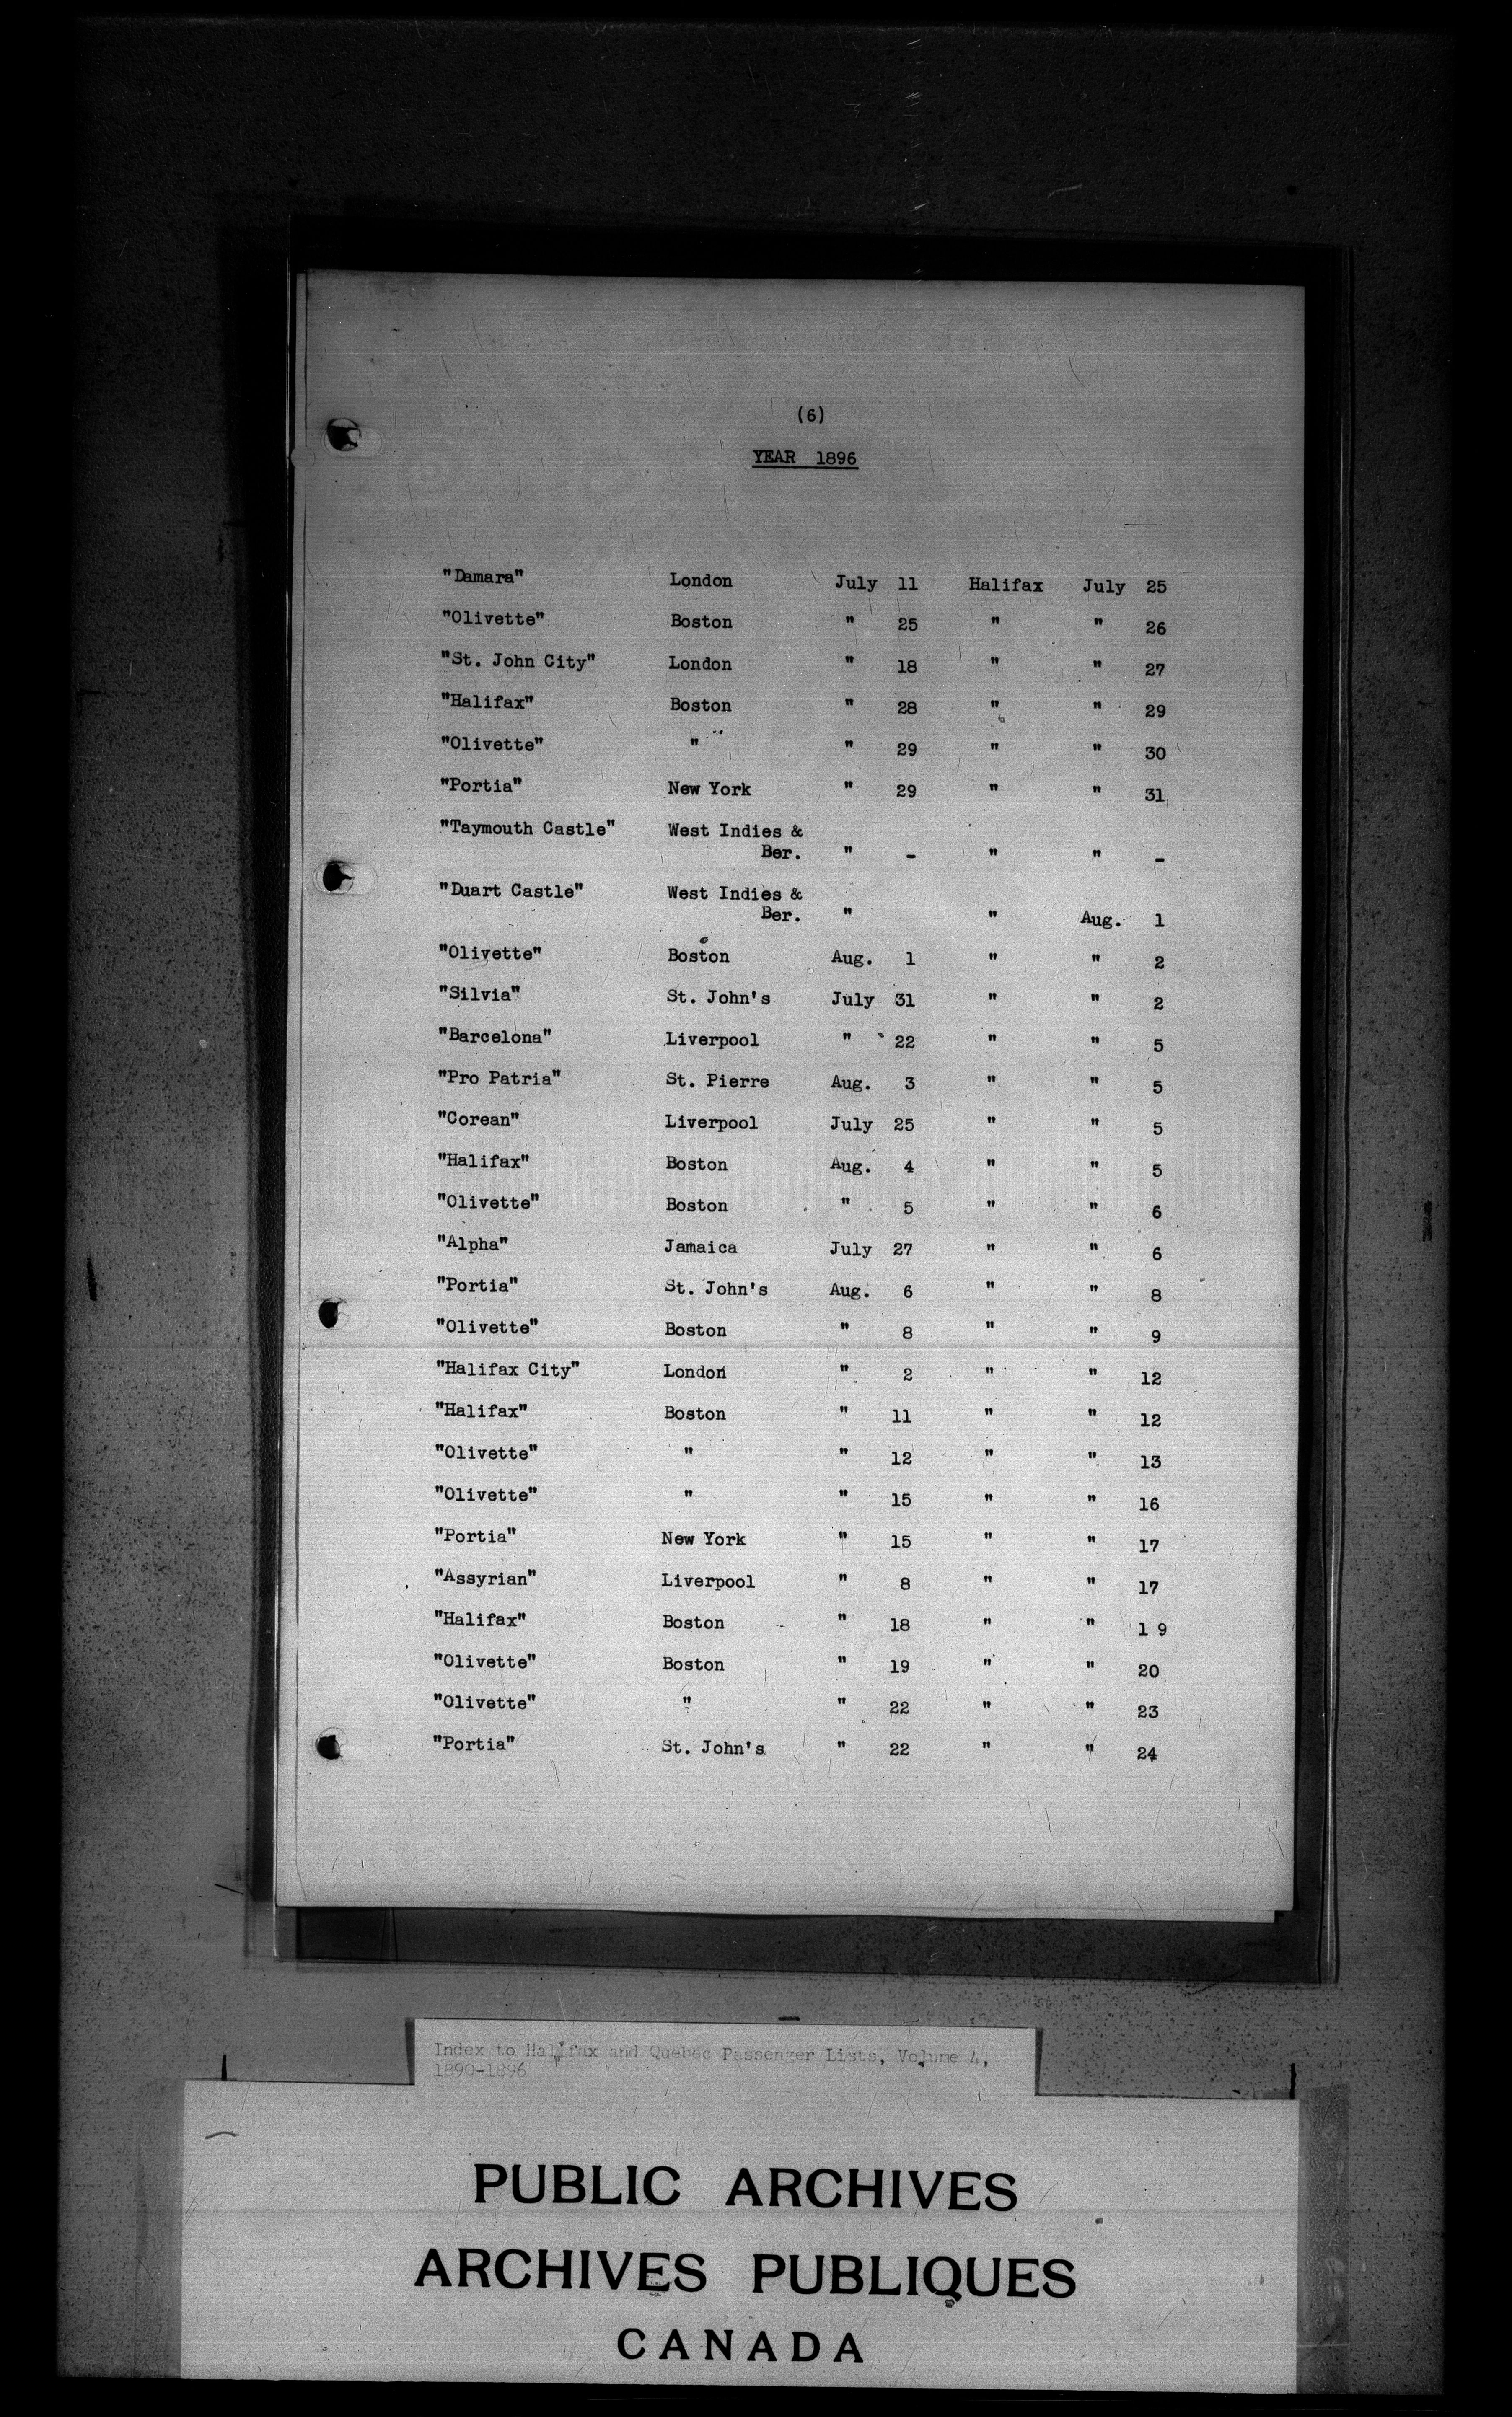 (6)
YEAR 1896
"Damara" London July 11 Halifax July 25
"Olivette" Boston " 25 " " 26
"St. John City" London " 18 " " 27
"Halifax" Boston " 28 " " 29
"Olivette" " " 29 " " 30
"Portia" New York " 29 " " 31
"Taymouth Castle" West Indies &
Ber. " - " " -
"Duart Castle" West Indies &
Ber. " " Aug. 1
"Olivette" Boston Aug. 1 " " 2
"Silvia" St. John's July 31 " " 2
"Barcelona" Liverpool " 22 " " 5
"Pro Patria" St. Pierre Aug. 3 " " 5
"Corean" Liverpool July 25 " " 5
"Halifax" Boston Aug. 4 " " 5
"Olivette" Boston " 5 " " 6
"Alpha" Jamaica July 27 " " 6
"Portia" St. John's Aug. 6 " " 8
"Olivette" Boston " 8 " " 9
"Halifax City" London " 2 " " 12
"Halifax" Boston " 11 " " 12
"Olivette" " " 12 " " 13
"Olivette" " " 15 " " 16
"Portia" New York " 15 " " 17
"Assyrian" Liverpool " 8 " " 17
"Halifax" Boston " 18 " " 1 9
"Olivette" Boston " 19 " " 20
"Olivette" " " 22 " " 23
"Portia" St. John's " 22 " " 24
Index to Halifax and Quebec Passenger Lists, Volume 4,
1890-1896
PUBLIC ARCHIVES
ARCHIVES PUBLIQUES
CANADA